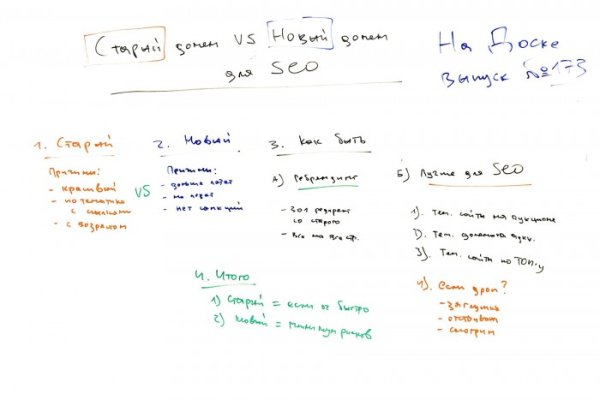 Старый домен VS Новый домен
для SEO
На Доске
Выпуск №173
1. Старый
Причины:
- красивый
- по тематике
с ссылками
- с возрастом
VS
2. Новый
Причины:
- дольше
- нет санкций
3. Как быть
А) Ребрендинг
- 301 редирект
со старого
- Все на все стр.
Б) Лучше для SEO
1). Тем. сайты на аукционе
2). Тем. домены аукц.
3). Тем. сайты по ТОП-у
4). Если дроп?
- загрузить
- отстоять
- смотрим
4. Итого
1) Старый = если оч быстро
2) Новый = минимум рисков